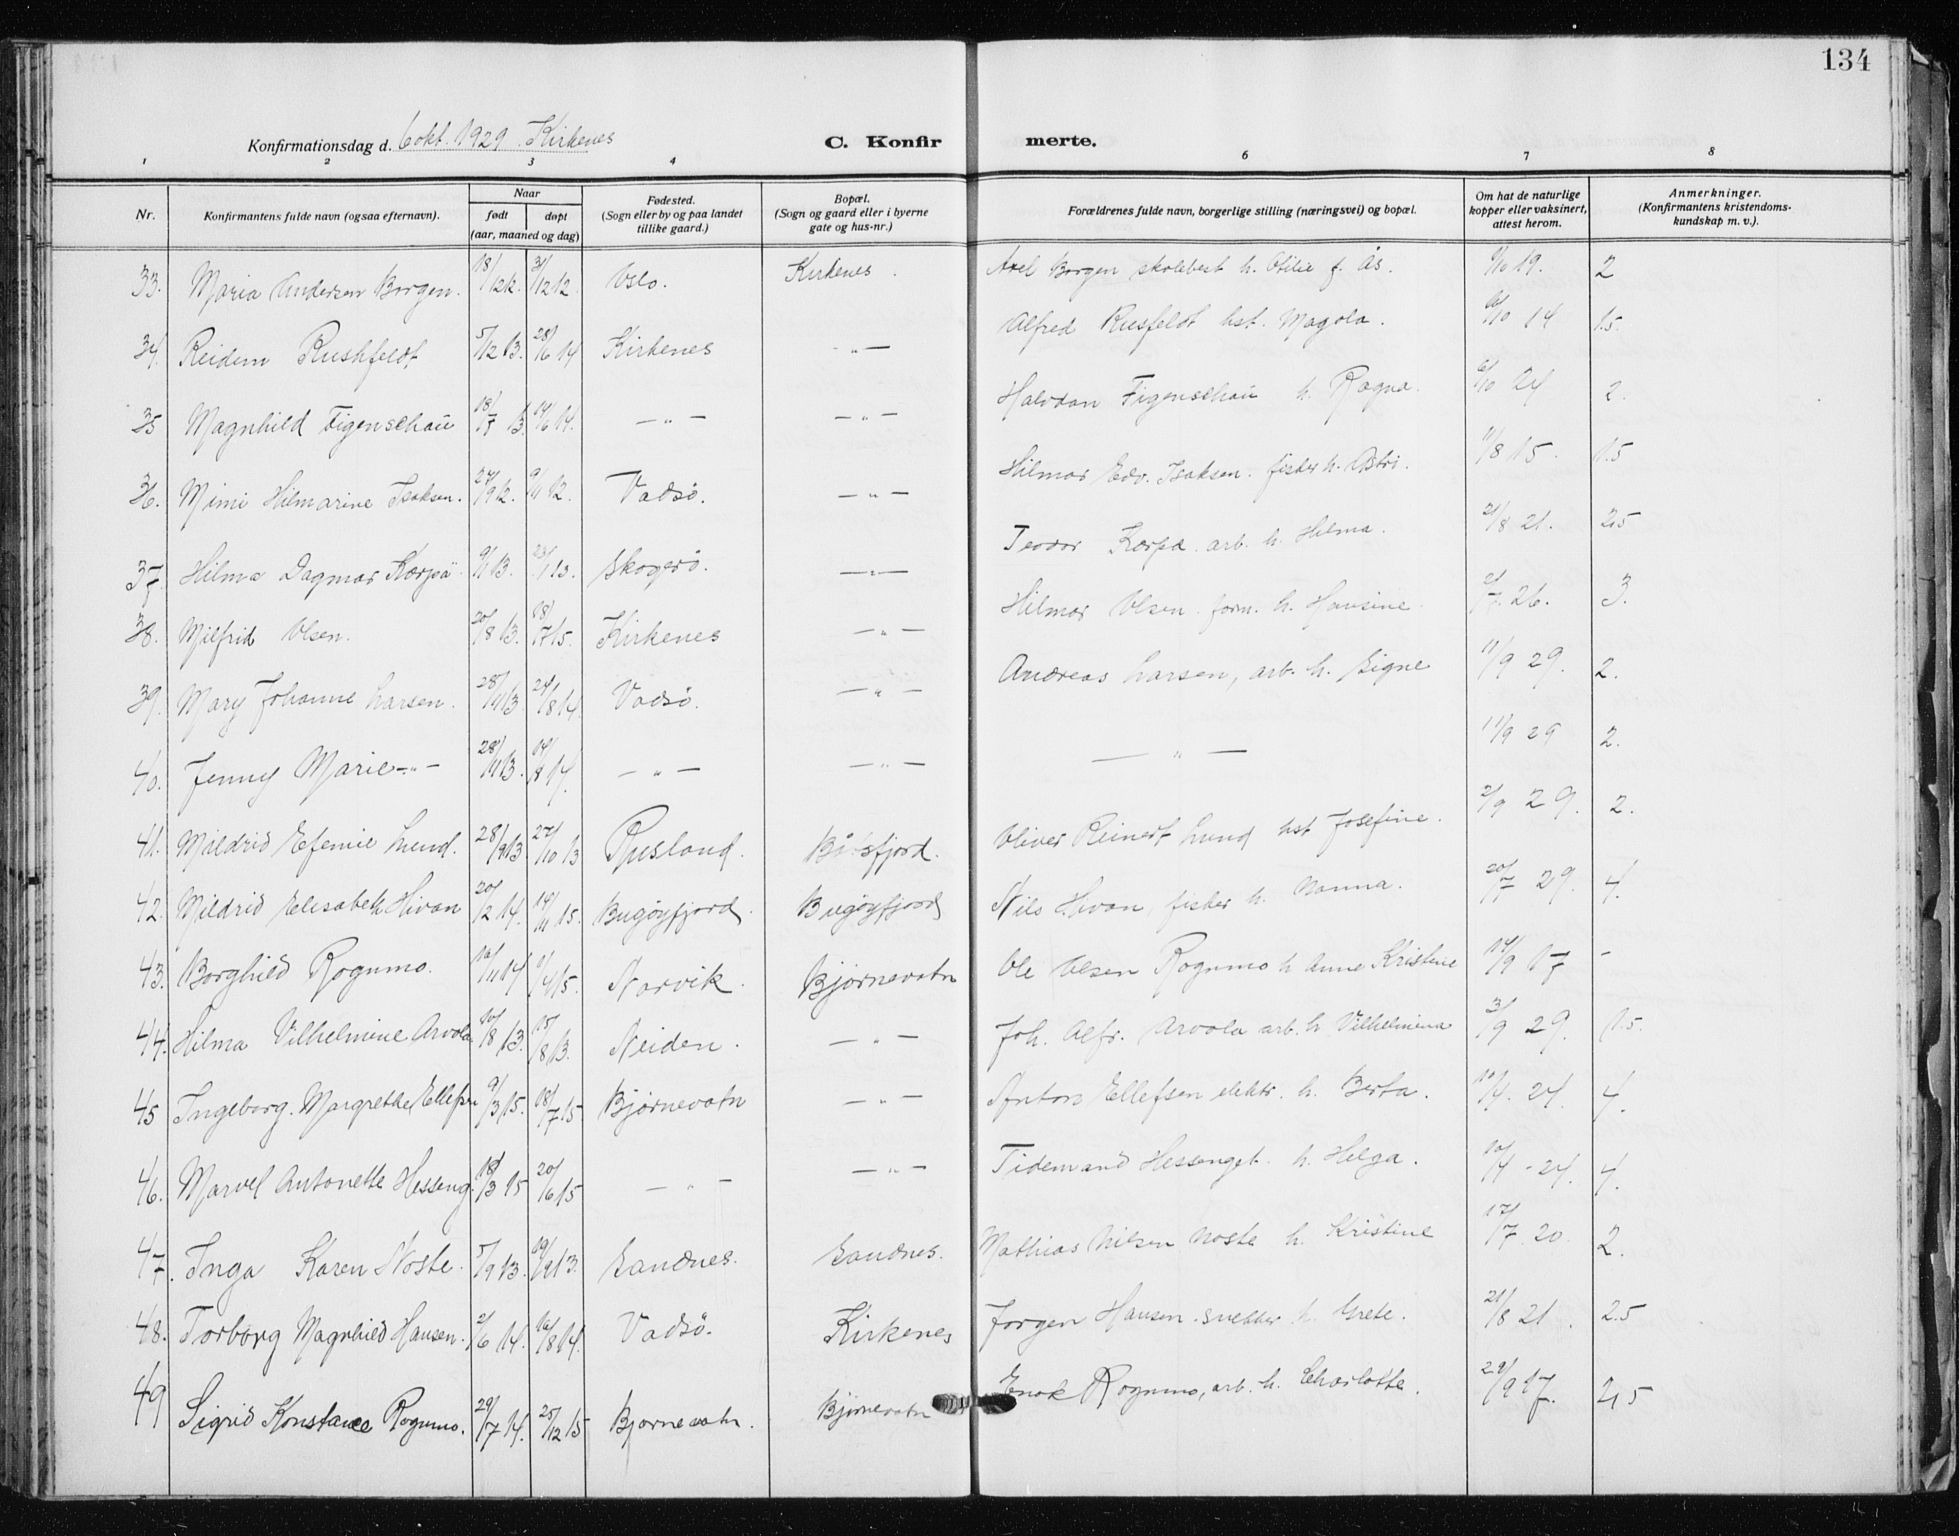 134
Konfirmationsdag d. 6 okt. 1929 Kirkenes
C. Konfir merte.
1 2 3 4 6 7 8
Nr.
Konfirmantens fulde navn (ogsaa efternavn).
Naar
født døpt
(aar, maaned og dag)
Fødested.
(Sogn eller by og paa landet
tillike gaard.)
Bopæl.
(Sogn og gaard eller i byerne
gate og hus-nr.)
Forældrenes fulde navn, borgerlige stilling (næringsvei) og bopæl.
Om hat de naturlige
kopper eller vaksinert,
attest herom.
Anmerkninger.
(Konfirmantens kristendoms-
kundskap m. v.).
33. Maria Andersen Borgen. 18/12 12. 31/12 12. Oslo. Kirkenes. Axel Borgen skolebest h. Otilie f. Ås. 19. 2
34. Reidun Rushfeldt 5/12 13. 28/6 14 Kirkenes —„— Alfred Rusfeldt hst. Magola. 14 1.5.
35 Magnhild Figenschau 18/7 13. 14/6 14. —„— —„— Halvdan Figenschau h. Ragna. 24 2.
36. Mimi Hilmarine Isaksen. 27/9 12. 9/11 12. Vadsø. —„— Hilmar Edv. Isaksen. fisker h. Astri. 11/8 15. 1.5
37. Hilma Dagmar Karpä 9/1 13. 23/1 13. Skogerø. —„— Teodor Karpa. arb. h. Hilma. 21/8 21. 2,5
38. Milfrid Olsen. 20/8 13. 18/7 15. Kirkenes —„— Hilmar Olsen. form. h. Hansine. 21/7. 26. 3.
39. Mary Johanne Larsen. 28/11 13. 24/8 14. Vadsø. —„— Andreas Larsen, arb. h. Signe 11/9 29. 2.
40. Jenny Marie —„— 28/11 13. 8 14. —„— —„— —„— 11/9 29 2.
41. Mildrid Efemie Lund. 28/9 13 27/10 13 Rusland. Båtsfjord. Oliver Reinert Lund hst Josefine. 2/9 29. 2.
42. Mildrid Elisabeth Hivan 20/2 14. 14/11 15. Bugøyfjord. Bugøyfjord Nils Hivan, fisker h. Nanna. 20/7 29. 4.
43. Borghild Rognmo. 10/11 14 4 15. Narvik. Bjørnevatn Ole Olsen Rognmo h Anne Kristine 14/9 17 -
44. Hilma Vilhelmine Arvola 10/8 13. 15/8 13. Neiden. —„— Joh. Alfr. Arvola arb. h. Vilhelmina 3/9 29. 1.5.
45 Ingeborg. Margrethe Ellefsen 9/3 15. 18/7 15 Bjørnevatn —„— Anton Ellefsen elektr. h. Berta. 10/4. 24. 4.
46. Marvel Antonette Hesseng. 18/3 15 20/6 15 —„— —„— Tidemand Hessenget. h. Helga. 10/4 - 24. 4.
47. Inga Karen Noste. 5/9 13. 13. Sandnes. Sandnes. Mathias Nilsen Noste h. Kristine 17/7. 20. 2.
48. Torborg Magnhild Hansen. 2/6 14. 16/8 14. Vadsø. Kirkenes Jørgen Hansen. snekker h. Grete. 21/8 21. 2.5
49 Sigrid Konstance Rognmo. 29/7 14. 25/12 15 Bjørnevatn. Bjørnevatn Enok Rognmo, arb. h. Charlotte. 29/9 17. 2,5